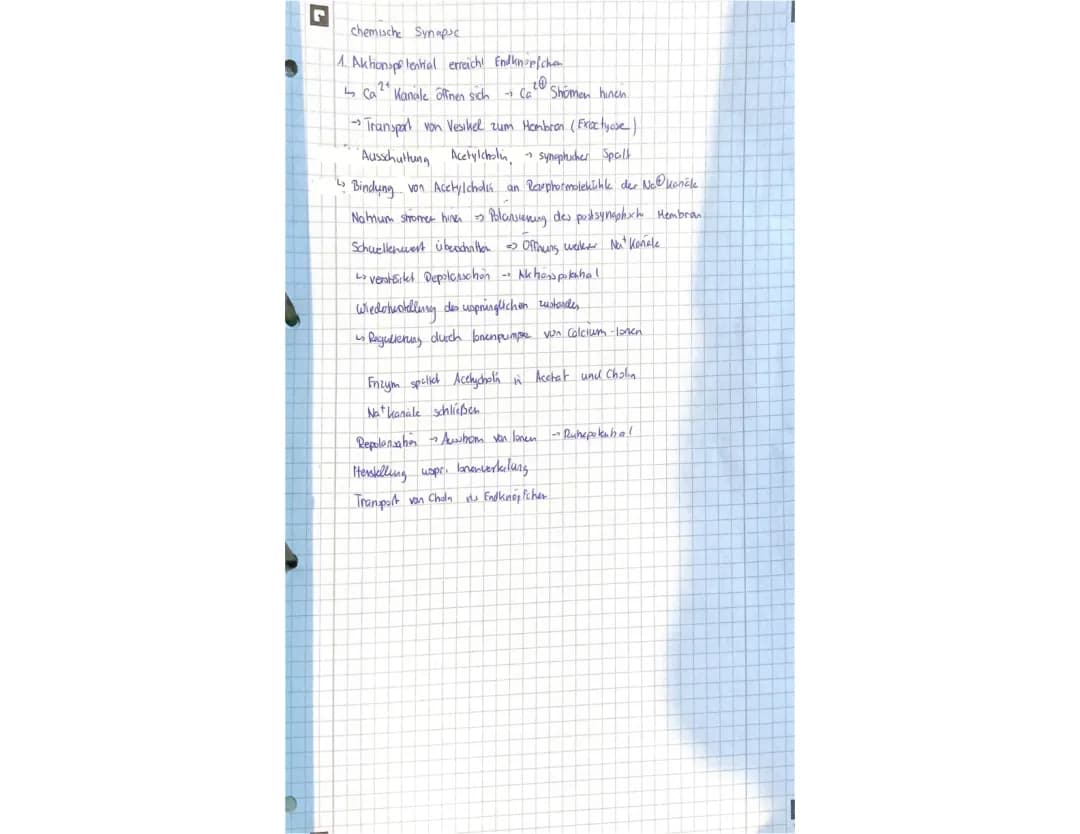 chemische Synapse
1. Aktionspotential erreicht Endknöpfchen
↳ Ca²⁺ Kanäle öffnen sich → Ca²⊕ Strömen hinein
→ Transport von Vesikel zum Membran (Exoctyose)
Ausschüttung Acetylcholin, → synaptischer Spalt
↳ Bindung von Acetylcholin an Rezeptormoleküle der Na⊕ Kanäle
Natrium strömen hinein ⇒ Polarisierung des postsynaptisch Membran
Schwellenwert überschritten ⇒ Öffnung weiterer Na⁺ Kanäle
↳ verstärkt Depolarisation → Aktionspotential
Wiederherstellung des ursprünglichen zustandes
↳ Regulierung durch Ionenpumpe von Calcium-Ionen
Enzym spaltet Acetycholin in Acetat und Cholin
Na⁺ kanäle schließen
Repolarisation → Ausstrom von Ionen → Ruhepotential
Herstellung urspr. Ionenverteilung
Transport von Cholin ins Endknöpfchen